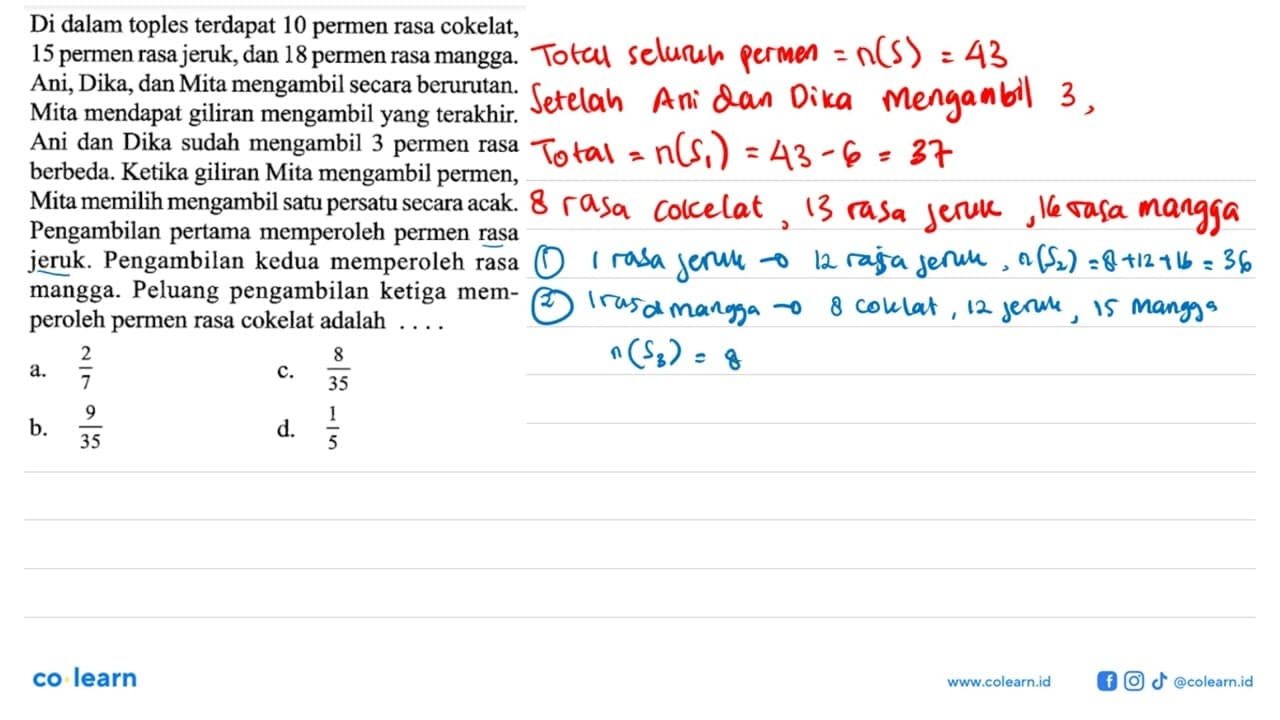 Di dalam toples terdapat 10 permen rasa cokelat,
15 permen rasa jeruk, dan 18 permen rasa mangga.
Ani, Dika, dan Mita mengambil secara berurutan.
Mita mendapat giliran mengambil yang terakhir.
Ani dan Dika sudah mengambil 3 permen rasa
berbeda. Ketika giliran Mita mengambil permen,
Mita memilih mengambil satu persatu secara acak.
Pengambilan pertama memperoleh permen rasa
jeruk. Pengambilan kedua memperoleh rasa
mangga. Peluang pengambilan ketiga mem-
peroleh permen rasa cokelat adalah . . . .
a. 2/7
c. 8/35
b. 9/35
d. 1/5
Total seluruh permen = n(S) = 43
Setelah Ani dan Dika mengambil 3,
Total = n(S₁) = 43 - 6 = 37
8 rasa cokelat, 13 rasa jeruk, 16 rasa mangga
① 1 rasa jeruk → 12 rasa jeruk, n(S₂) = 8+12+16 = 36
② 1 rasa mangga → 8 coklat, 12 jeruk, 15 mangga
n(S₃) = 8
co·learn
www.colearn.id
@colearn.id